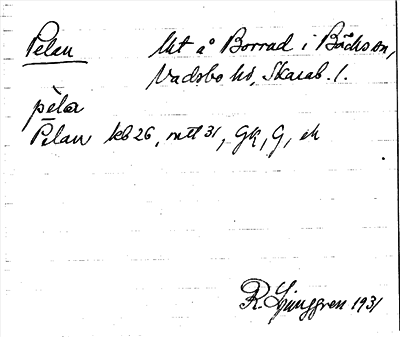 Pelan Ut å Borrad i Bäckson,
Vadsbo hd, Skarab. l.
pèla
Pelan kb 26, mtl 31, GK, G, ek
R. Ljunggren 1931